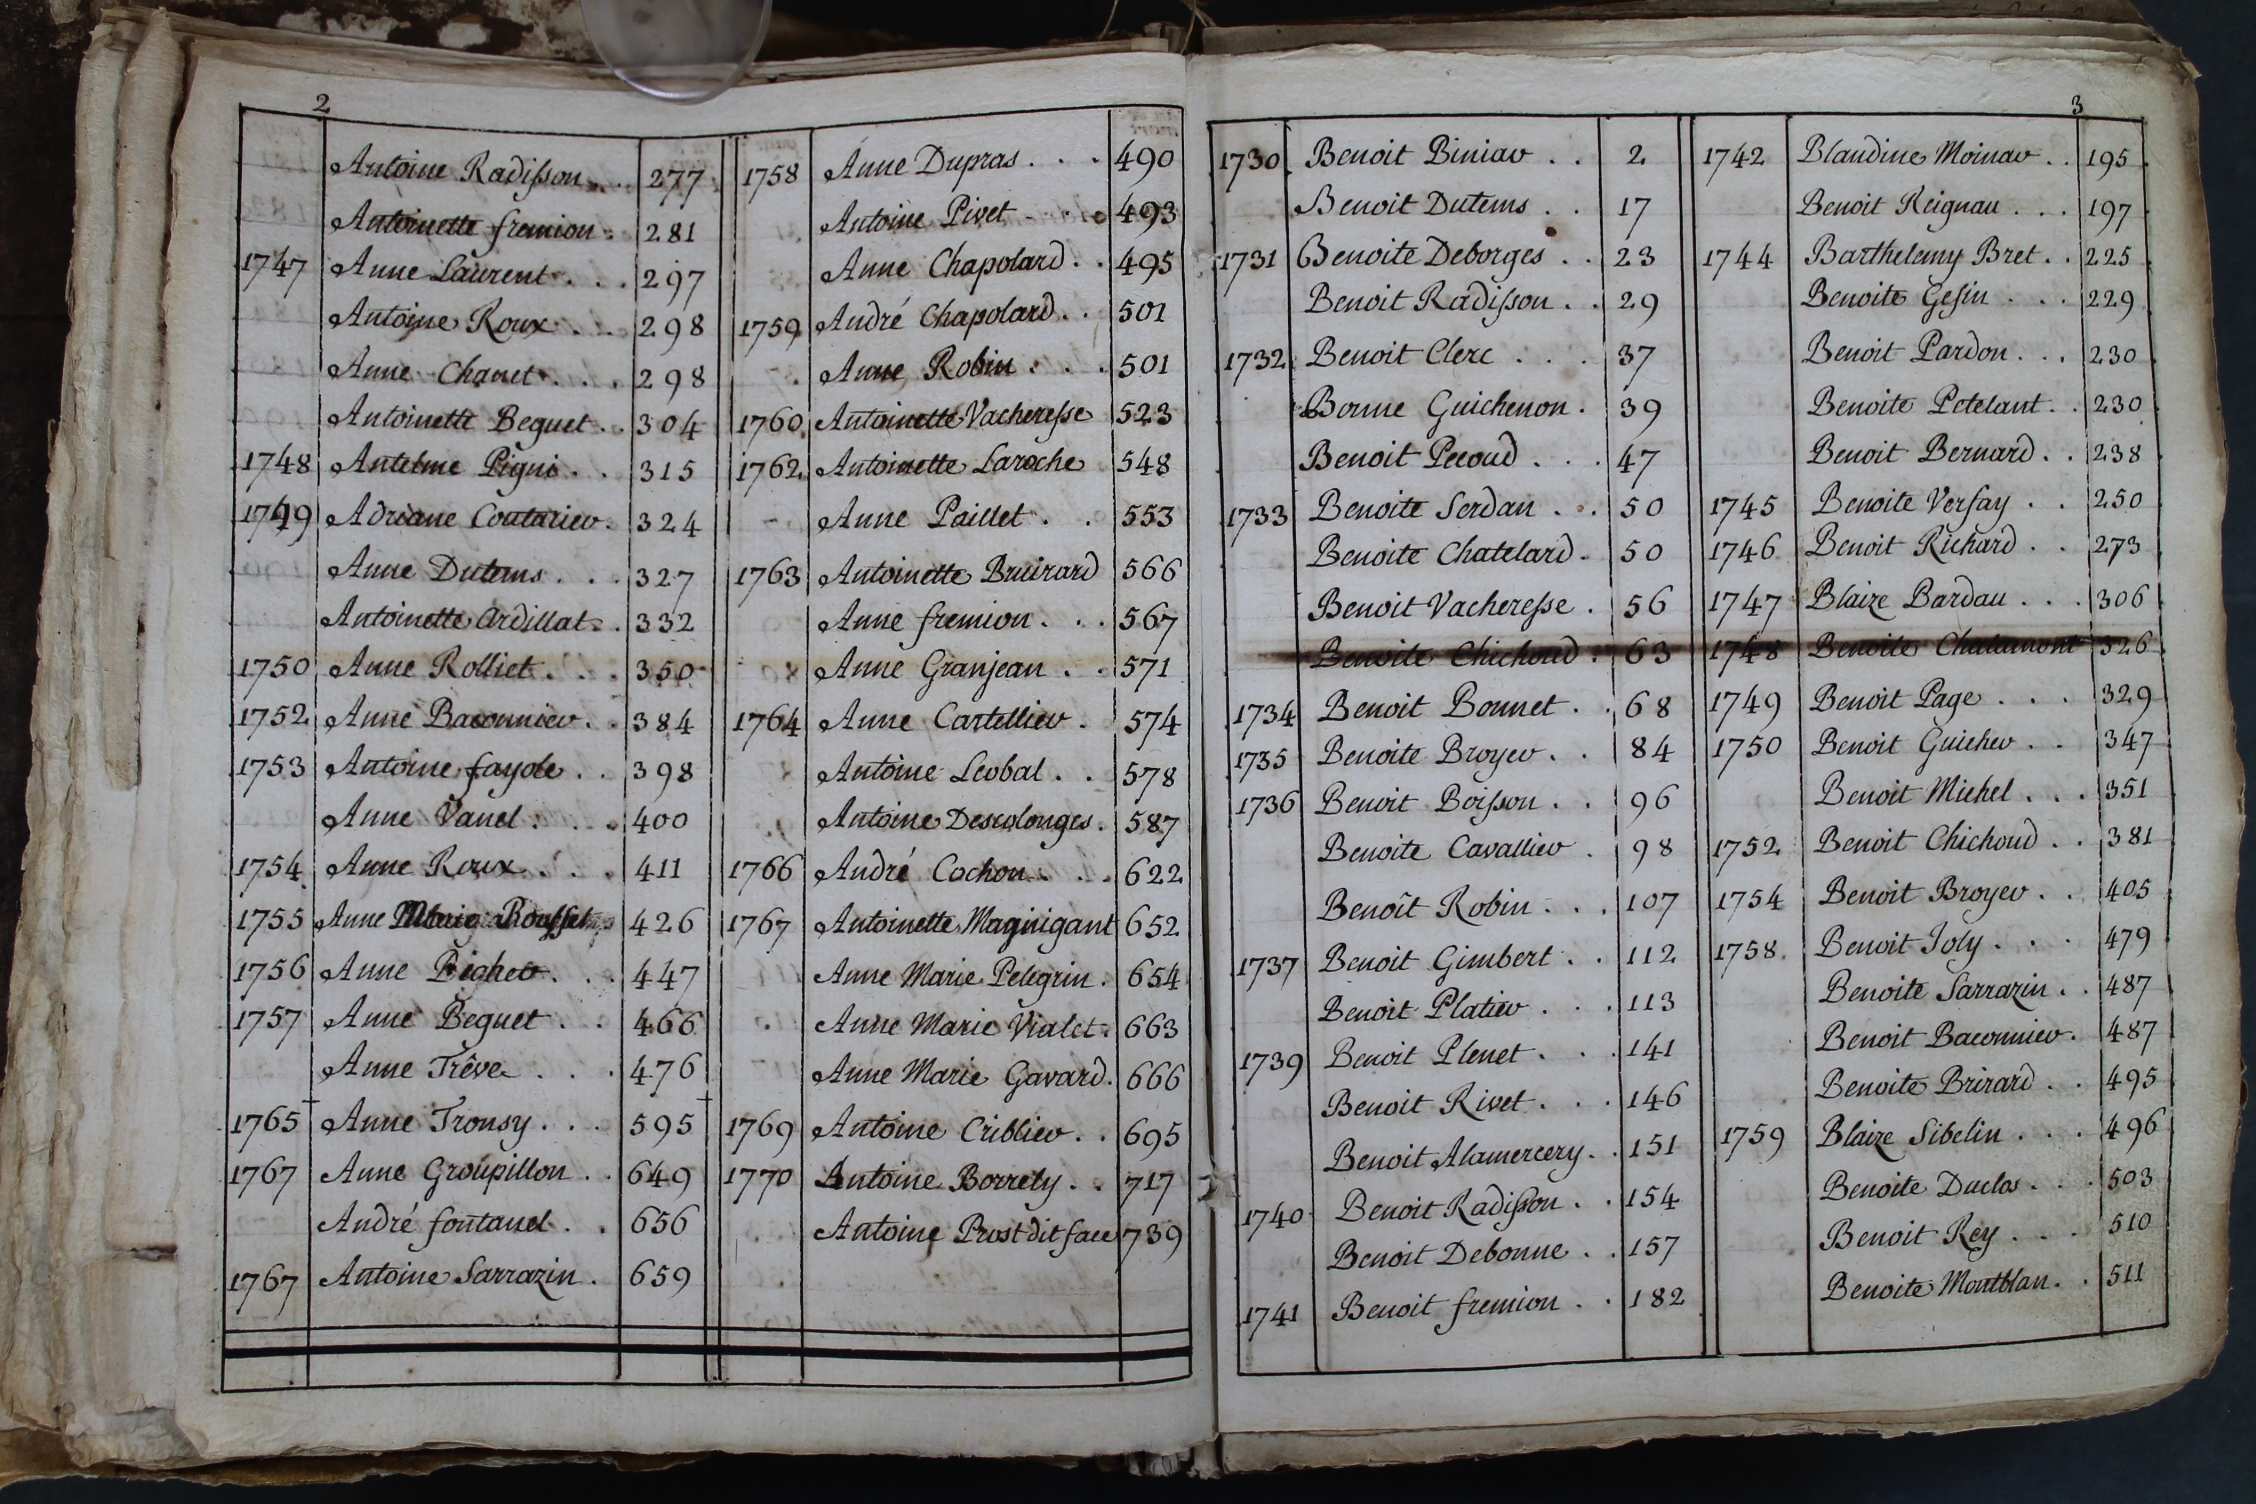 2
Antoine Radisson . . 277
Antoinette fremion . 281
1747 Anne Laurent . . . 297
Antoine Roux . . 298
Anne Chanet . . . 298
Antoinette Beguet . . 304
1748 Antelme Pigni . . 315
1749 Adriane Coutarier . 324
Anne Dutems . . . 327
Antoinette Ardillat . . 332
1750 Anne Rolliet . . . 350
1752 Anne Baconnier . . 384
1753 Antoine fayole . . 398
Anne Vanel . . . 400
1754 Anne Roux . . . 411
1755 Anne Marie Rousset 426
1756 Anne Picher . . . 447
1757 Anne Beguet . . 466
Anne Trêve . . . 476
1765 Anne Tronsy . . . 595
1767 Anne Groupillon . . 649
André fontanel . . 656
1767 Antoine Sarrazin . 659
1758 Anne Dupras . . . 490
Antoine Pivet . . . 493
Anne Chapolard . . 495
1759 André Chapolard . . 501
Anne Robin . . . 501
1760 Antoinette Vacheresse 523
1762 Antoinette Laroche 548
Anne Paillet . . 553
1763 Antoinette Bruirard 566
Anne fremion . . . 567
Anne Granjean . . 571
1764 Anne Cartellier . 574
Antoine Leobal . . 578
Antoine Descolonges . 587
1766 André Cochon . . . 622
1767 Antoinette Magnigant 652
Anne Marie Pelegrin . 654
Anne Marie Vialet . 663
Anne Marie Gavard . 666
1769 Antoine Criblier . . 695
1770 Antoine Borrely . . 717
Antoine Prost dit face 739
3
1730 Benoit Binier . . 2
Benoit Dutems . . 17
1731 Benoite Deborges . . 23
Benoit Radisson . . 29
1732 Benoit Clerc . . . 37
Bonne Guichenon . 39
Benoit Pecoud . . . 47
1733 Benoite Serdan . . 50
Benoite Chatelard . 50
Benoit Vacheresse . 56
Benoite Chichoud . 63
1734 Benoit Bonnet . . 68
1735 Benoite Broyer . . 84
1736 Benoit Boisson . . 96
Benoite Cavallier . 98
Benoît Robin . . . 107
1737 Benoit Gimbert . . 112
Benoit Platier . . . 113
1739 Benoit Plenet . . . 141
Benoit Rivet . . . 146
Benoit Alamercery . . 151
1740 Benoit Radisson . . 154
Benoit Debonne . . 157
1741 Benoit fremion . . 182
1742 Blandine Moiner . . 195
Benoit Reignau . . . 197
1744 Barthelemy Bret . . 225
Benoite Gesin . . . 229
Benoit Pardon . . . 230
Benoite Petelant . . 230
Benoit Bernard . . 238
1745 Benoite Versay . . 250
1746 Benoit Richard . . 273
1747 Blaize Bardau . . . 306
1748 Benoite Chatamont 326
1749 Benoit Page . . . 329
1750 Benoit Guicher . . 347
Benoit Michel . . . 351
1752 Benoit Chichoud . . 381
1754 Benoit Broyer . . 405
1758 Benoit Joly . . . 479
Benoite Sarrazin . . 487
Benoit Baconnier . 487
Benoite Brirard . . 495
1759 Blaize Sibelin . . . 496
Benoite Duclos . . . 503
Benoit Rey . . . 510
Benoite Montblan . . 511